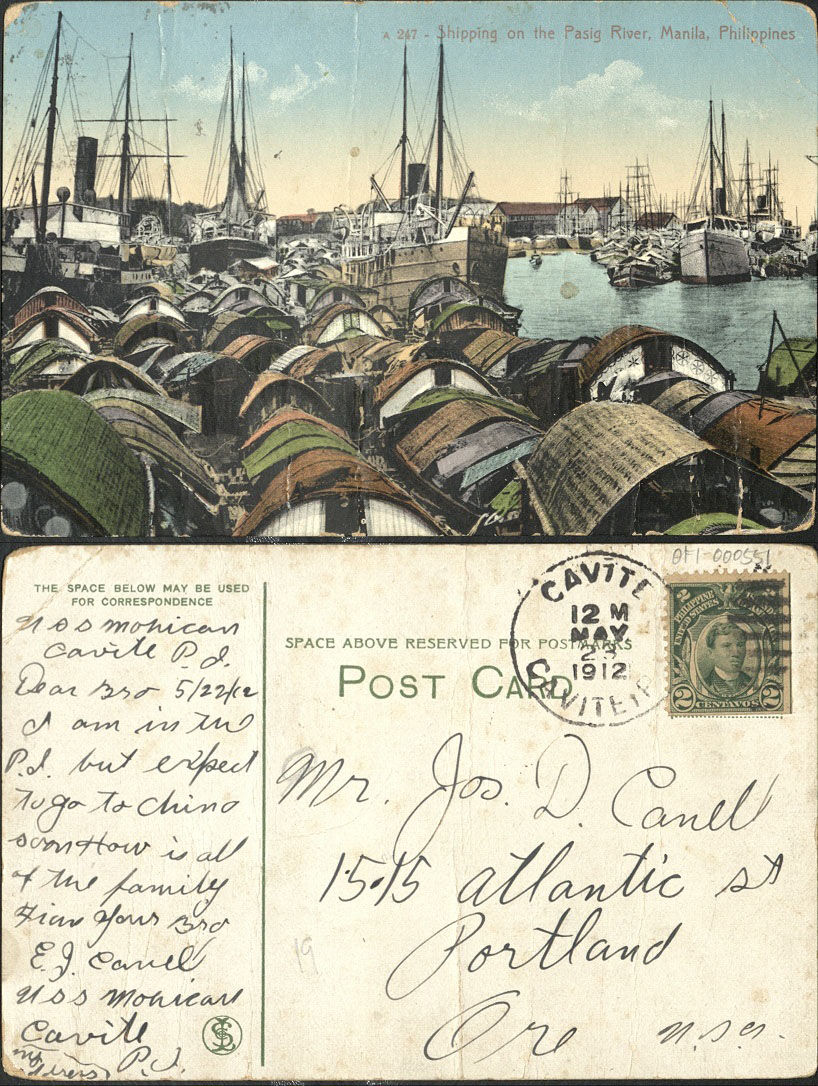 A 247 - Shipping on the Pasig River, Manila, Philippines
THE SPACE BELOW MAY BE USED
FOR CORRESPONDENCE
USS Mohican
Cavite P.I.
Dear Bro 5/22/12
I am in the
P.I. but expect
to go to China
soon How is all
of the family
Your Bro
E. J. Canell
USS Mohican
Cavite
P.I.
SPACE ABOVE RESERVED FOR POSTMARKS
POST CARD
OF1-000551
CAVITE
12 M
MAY
23
1912
CAVITE, P.I.
PHILIPPINE ISLANDS
UNITED STATES OF AMERICA
2 CENTAVOS 2
Mr. Jos. D. Canell
1515 Atlantic St
Portland
Ore U.S.A.
19